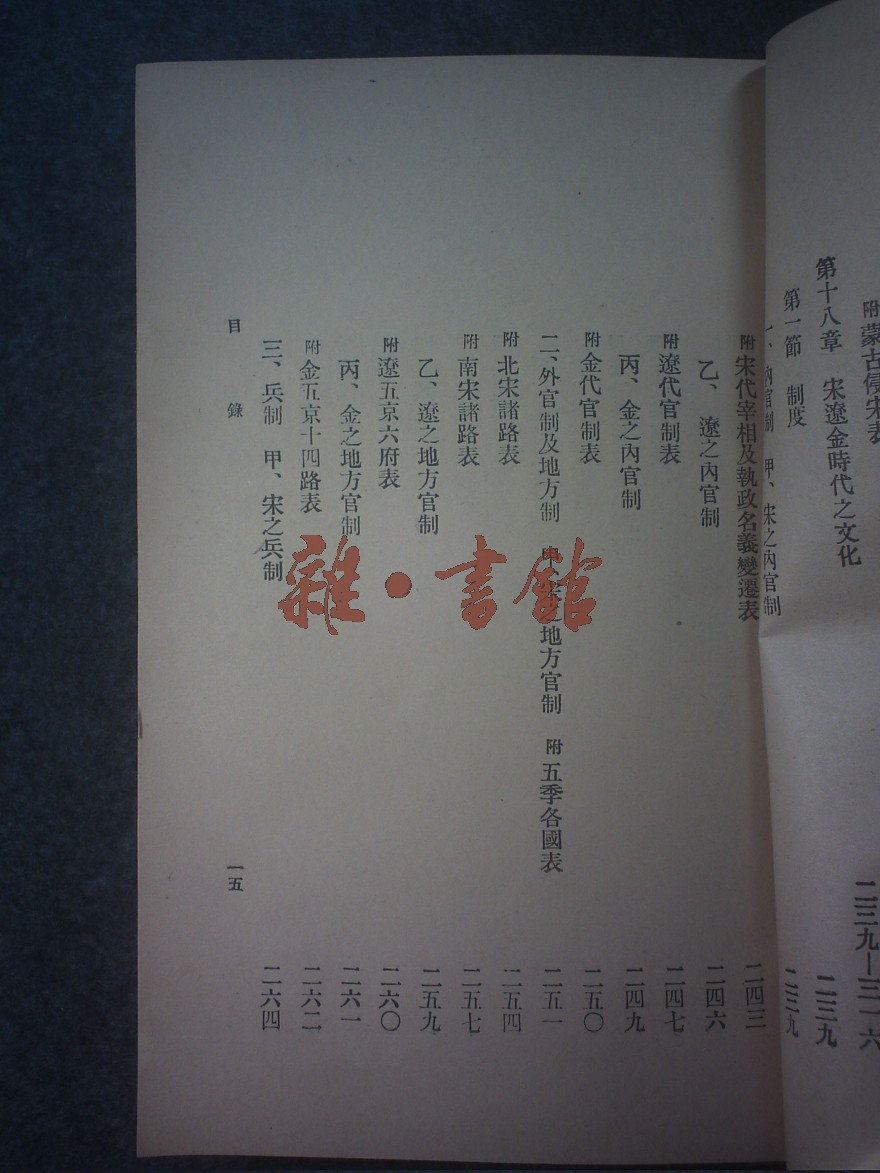 附 蒙古侵宋表
第十八章 宋遼金時代之文化 二三九—三一六
第一節 制度 二三九
一、內官制 甲、宋之內官制 二三九
附 宋代宰相及執政名義變遷表 二四三
乙、遼之內官制 二四六
附 遼代官制表 二四七
丙、金之內官制 二四九
附 金代官制表 二五〇
二、外官制及地方制 甲、宋之地方官制 附 五季各國表 二五一
附 北宋諸路表 二五四
附 南宋諸路表 二五七
乙、遼之地方官制 二五九
附 遼五京六府表 二六〇
丙、金之地方官制 二六一
附 金五京十四路表 二六二
三、兵制 甲、宋之兵制 二六四
目錄 一五
雜·書館